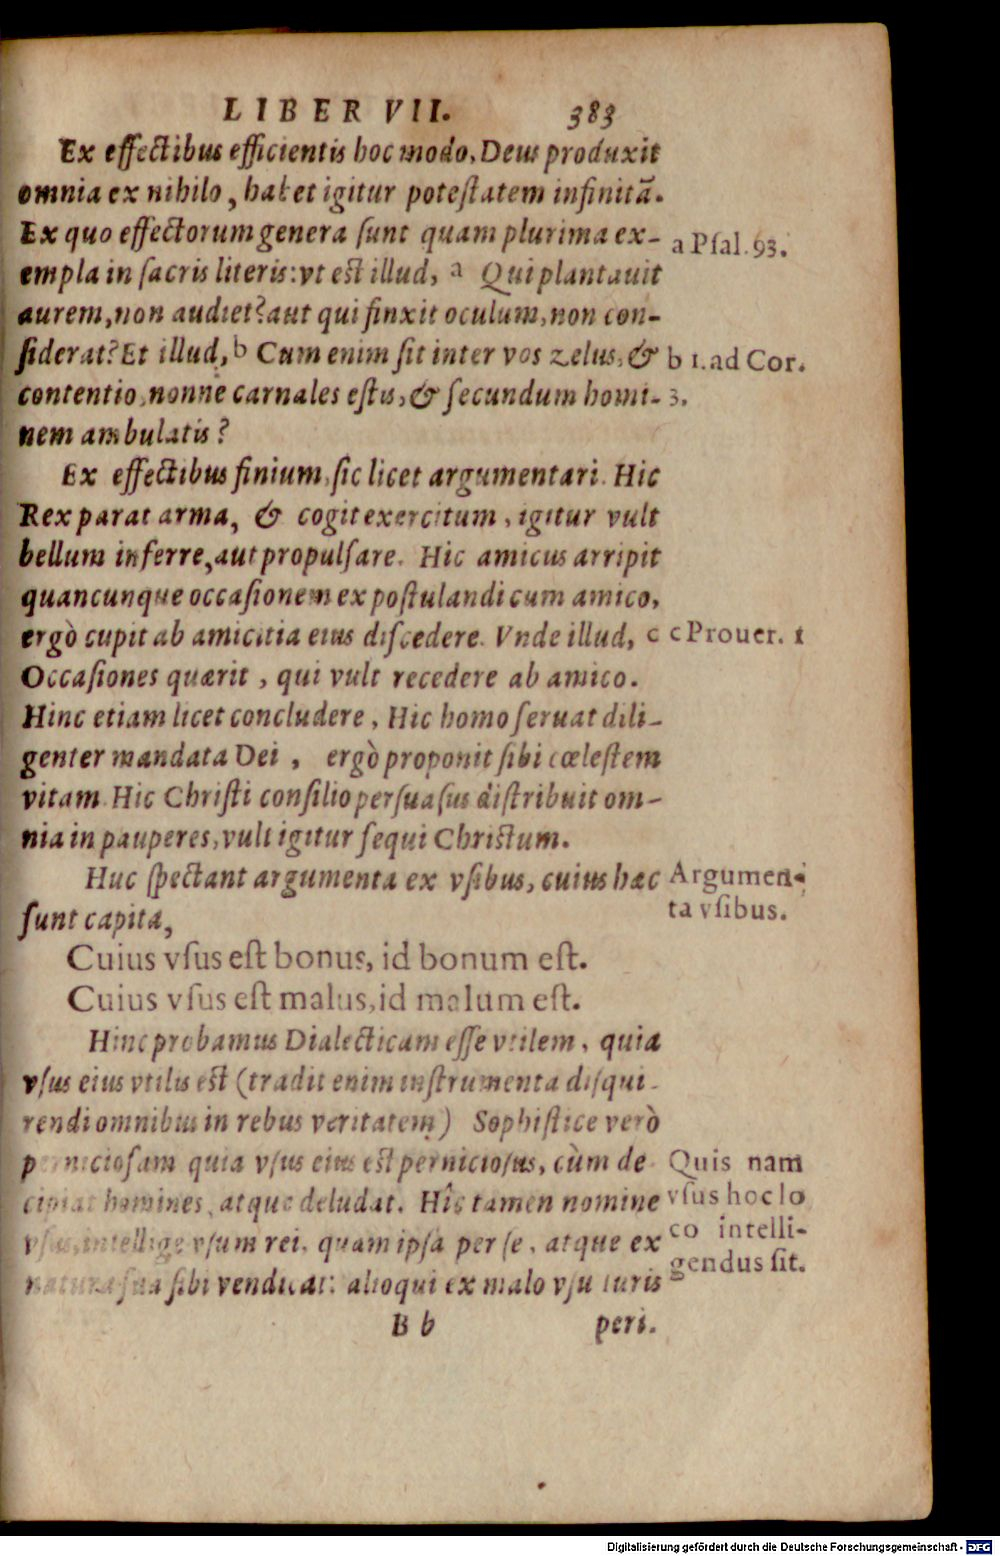 LIBER VII. 383
Ex effectibus efficientis hoc modo, Deus produxit
omnia ex nihilo, habet igitur potestatem infinitã.
Ex quo effectorum genera sunt quam plurima ex-
a Psal. 93.
empla in sacris literis: vt est illud, a Qui plantauit
aurem, non audiet? aut qui finxit oculum, non con-
siderat? Et illud, b Cum enim sit inter vos zelus, &
b 1. ad Cor.
contentio, nonne carnales estis, & secundum homi-
3.
nem ambulatis?
Ex effectibus finium, sic licet argumentari. Hic
Rex parat arma, & cogit exercitum, igitur vult
bellum inferre, aut propulsare. Hic amicus arripit
quancunque occasionem expostulandi cum amico,
ergò cupit ab amicitia eius discedere. Vnde illud, c
c Prouer. 1
Occasiones quærit, qui vult recedere ab amico.
Hinc etiam licet concludere, Hic homo seruat dili-
genter mandata Dei, ergò proponit sibi cœlestem
vitam. Hic Christi consilio persuasus distribuit om-
nia in pauperes, vult igitur sequi Christum.
Huc spectant argumenta ex vsibus, cuius hæc
Argumen-
sunt capita,
ta vsibus.
Cuius vsus est bonus, id bonum est.
Cuius vsus est malus, id malum est.
Hinc probamus Dialecticam esse vtilem, quia
vsus eius vtilis est (tradit enim instrumenta disqui-
rendi omnibus in rebus veritatem) Sophistice verò
perniciosam quia vsus eius est perniciosus, cùm de
Quis nam
cipiat homines, atque deludat. Hîc tamen nomine
vsus hoc lo
vsus, intellige vsum rei, quam ipsa per se, atque ex
co intelli-
natura sua sibi vendicat: alioqui ex malo vsu iuris
gendus sit.
B b peri.
Digitalisierung gefördert durch die Deutsche Forschungsgemeinschaft - DFG